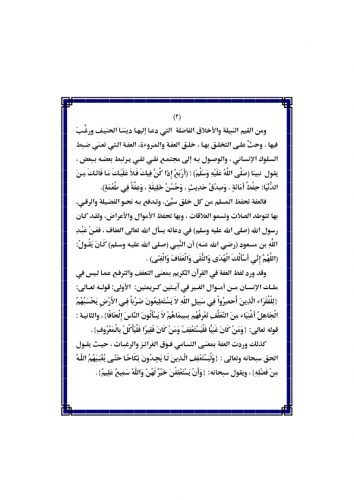 (٢)
ومن القيم النبيلة والأخلاق الفاضلة التي دعا إليها ديننا الحنيف ورغَّب
فيها ، وحثَّ على التخلق بها ، خلق العفة والمروءة، العفة التي تعني ضبط
السلوك الإنساني ، والوصول به إلى مجتمع نقي تقي يرتبط بعضه ببعض ،
يقول نبينا (صلَّى اللهُ عَلَيْهِ وسَلَّمَ) : (أَرْبَعٌ إِذَا كُنَّ فِيكَ فَلاَ عَلَيْكَ مَا فَاتَكَ مِنَ
الدُّنْيَا: حِفْظُ أَمَانَةٍ ، وَصِدْقُ حَدِيثٍ ، وَحُسْنُ خَلِيقَةٍ ، وَعِفَّةٌ فِي طُعْمَةٍ).
فالعفة تحفظ المسلم من كل خلق سيِّئ، وتدفع به نحو الفضيلة والرقي،
بها تتوطد الصلات وتسمو العلاقات ، وبها تحفظ الأموال والأعراض، ولقد كان
رسول الله (صلى الله عليه وسلم) في دعائه يسأل الله تعالى العفاف ، فعَنْ عَبْدِ
اللَّهِ بن مسعود (رضي الله عنه) أن النَّبِي (صلى الله عليه وسلم) كَانَ يَقُولُ:
(اللَّهُمَّ إِنِّي أَسْأَلُكَ الْهُدَى وَالتُّقَى وَالْعَفَافَ وَالْغِنَى) .
وقد ورد لفظ العفة في القرآن الكريم بمعنى التعفف والترفع عما ليس في
ملك الإنسان من أموال الغير في آيتين كريمتين: الأولى: قوله تعالى:
{لِلْفُقَرَاءِ الَّذِينَ أُحْصِرُوا فِي سَبِيلِ اللَّهِ لاَ يَسْتَطِيعُونَ ضَرْبًا فِي الأَرْضِ يَحْسَبُهُمُ
الْجَاهِلُ أَغْنِيَاءَ مِنَ التَّعَفُّفِ تَعْرِفُهُم بِسِيمَاهُمْ لاَ يَسْأَلُونَ النَّاسَ إِلْحَافًا} ، والثانية :
قوله تعالى : {وَمَن كَانَ غَنِيًّا فَلْيَسْتَعْفِفْ وَمَن كَانَ فَقِيرًا فَلْيَأْكُلْ بِالْمَعْرُوفِ}.
كذلك وردت العفة بمعنى التسامي فوق الغرائز والرغبات ، حيث يقول
الحق سبحانه وتعالى : {وَلْيَسْتَعْفِفِ الَّذِينَ لاَ يَجِدُونَ نِكَاحًا حَتَّى يُغْنِيَهُمُ اللَّهُ
مِن فَضْلِهِ} ، ويقول سبحانه: {وَأَنْ يَسْتَعْفِفْنَ خَيْرٌ لَهُنَّ وَاللَّهُ سَمِيعٌ عَلِيمٌ} .